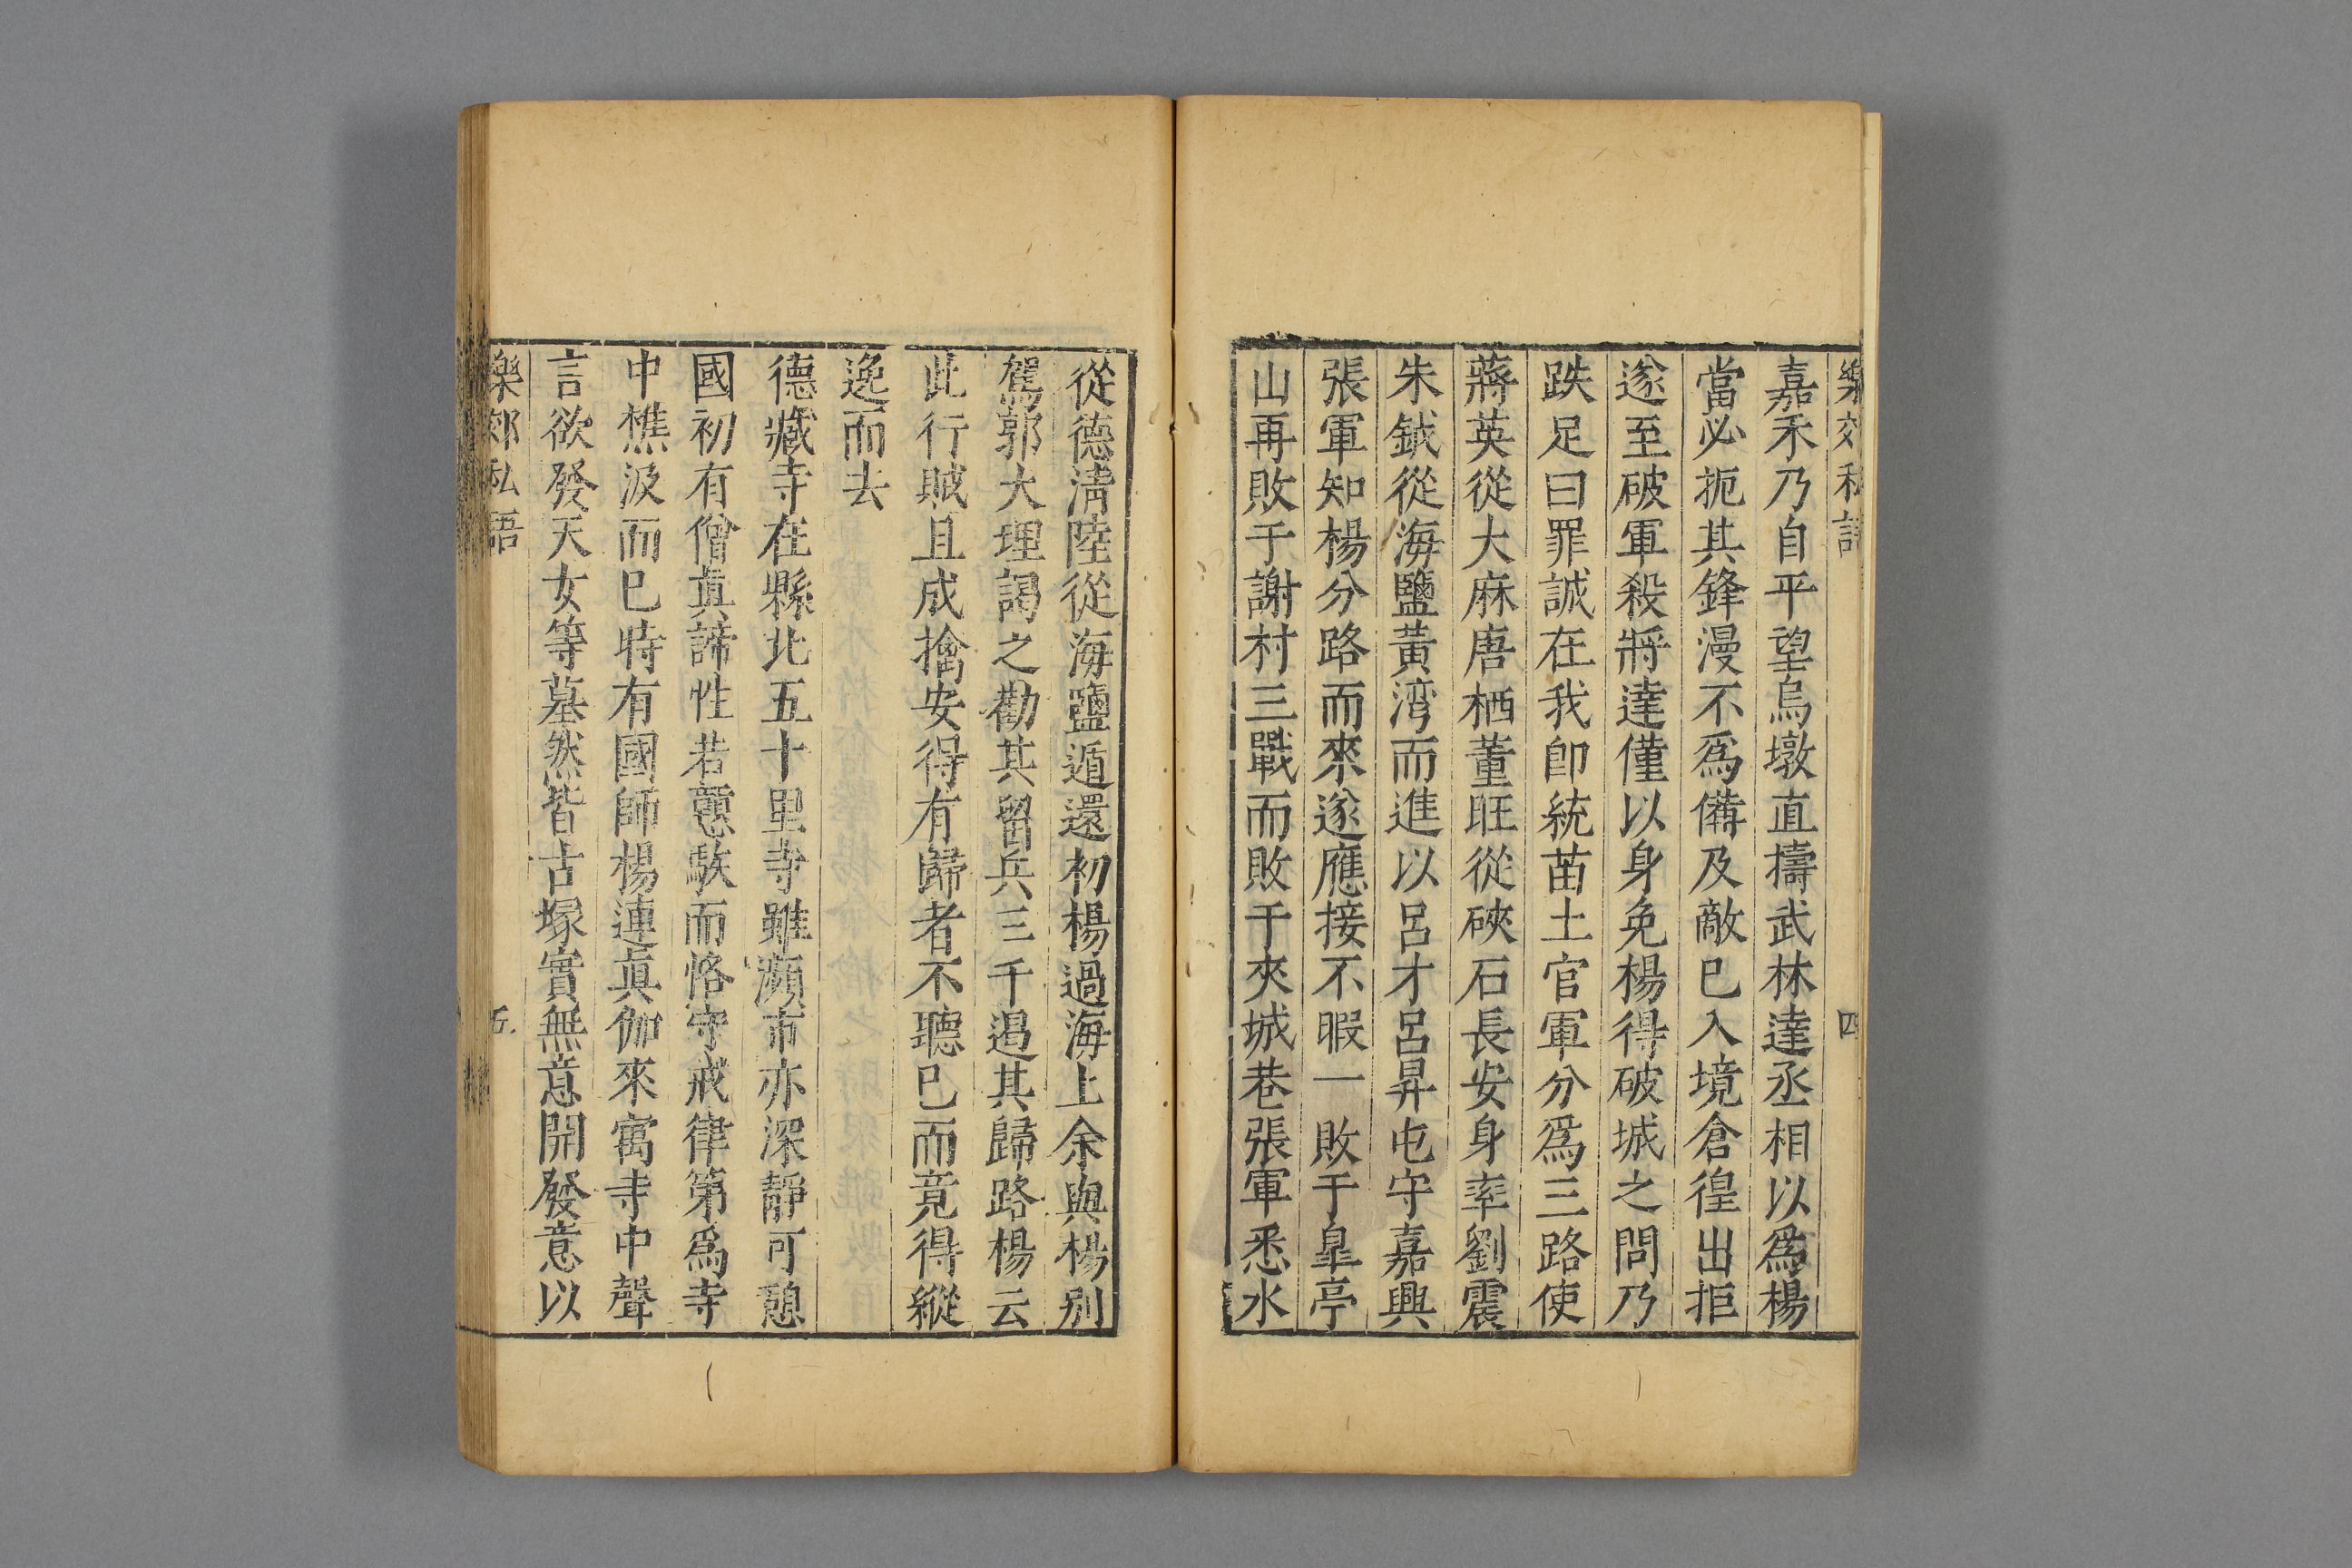 樂郊私語
四
嘉禾乃自平望烏墩直擣武林達丞相以爲楊
當必扼其鋒漫不爲備及敵已入境倉徨出拒
遂至破軍殺將達僅以身免楊得破城之問乃
跌足曰罪誠在我卽統苗土官軍分爲三路使
蔣英從大麻唐栖董旺從硤石長安身率劉震
朱鉞從海鹽黃湾而進以呂才呂昇屯守嘉興
張軍知楊分路而來遂應接不暇一敗于皐亭
山再敗于謝村三戰而敗于夾城巷張軍悉水
從德淸陸從海鹽遁還初楊過海上余與楊别
駕郭大理謁之勸其畱兵三千遏其歸路楊云
此行賊且成擒安得有歸者不聽已而竟得縱
逸而去
德藏寺在縣北五十里寺雖瀕市亦深靜可憩
國初有僧眞諦性若戇騃而恪守戒律第爲寺
中樵汲而已時有國師楊連眞伽來寓寺中聲
言欲發天女等墓然皆古塚實無意開發意以
樂郊私語
五